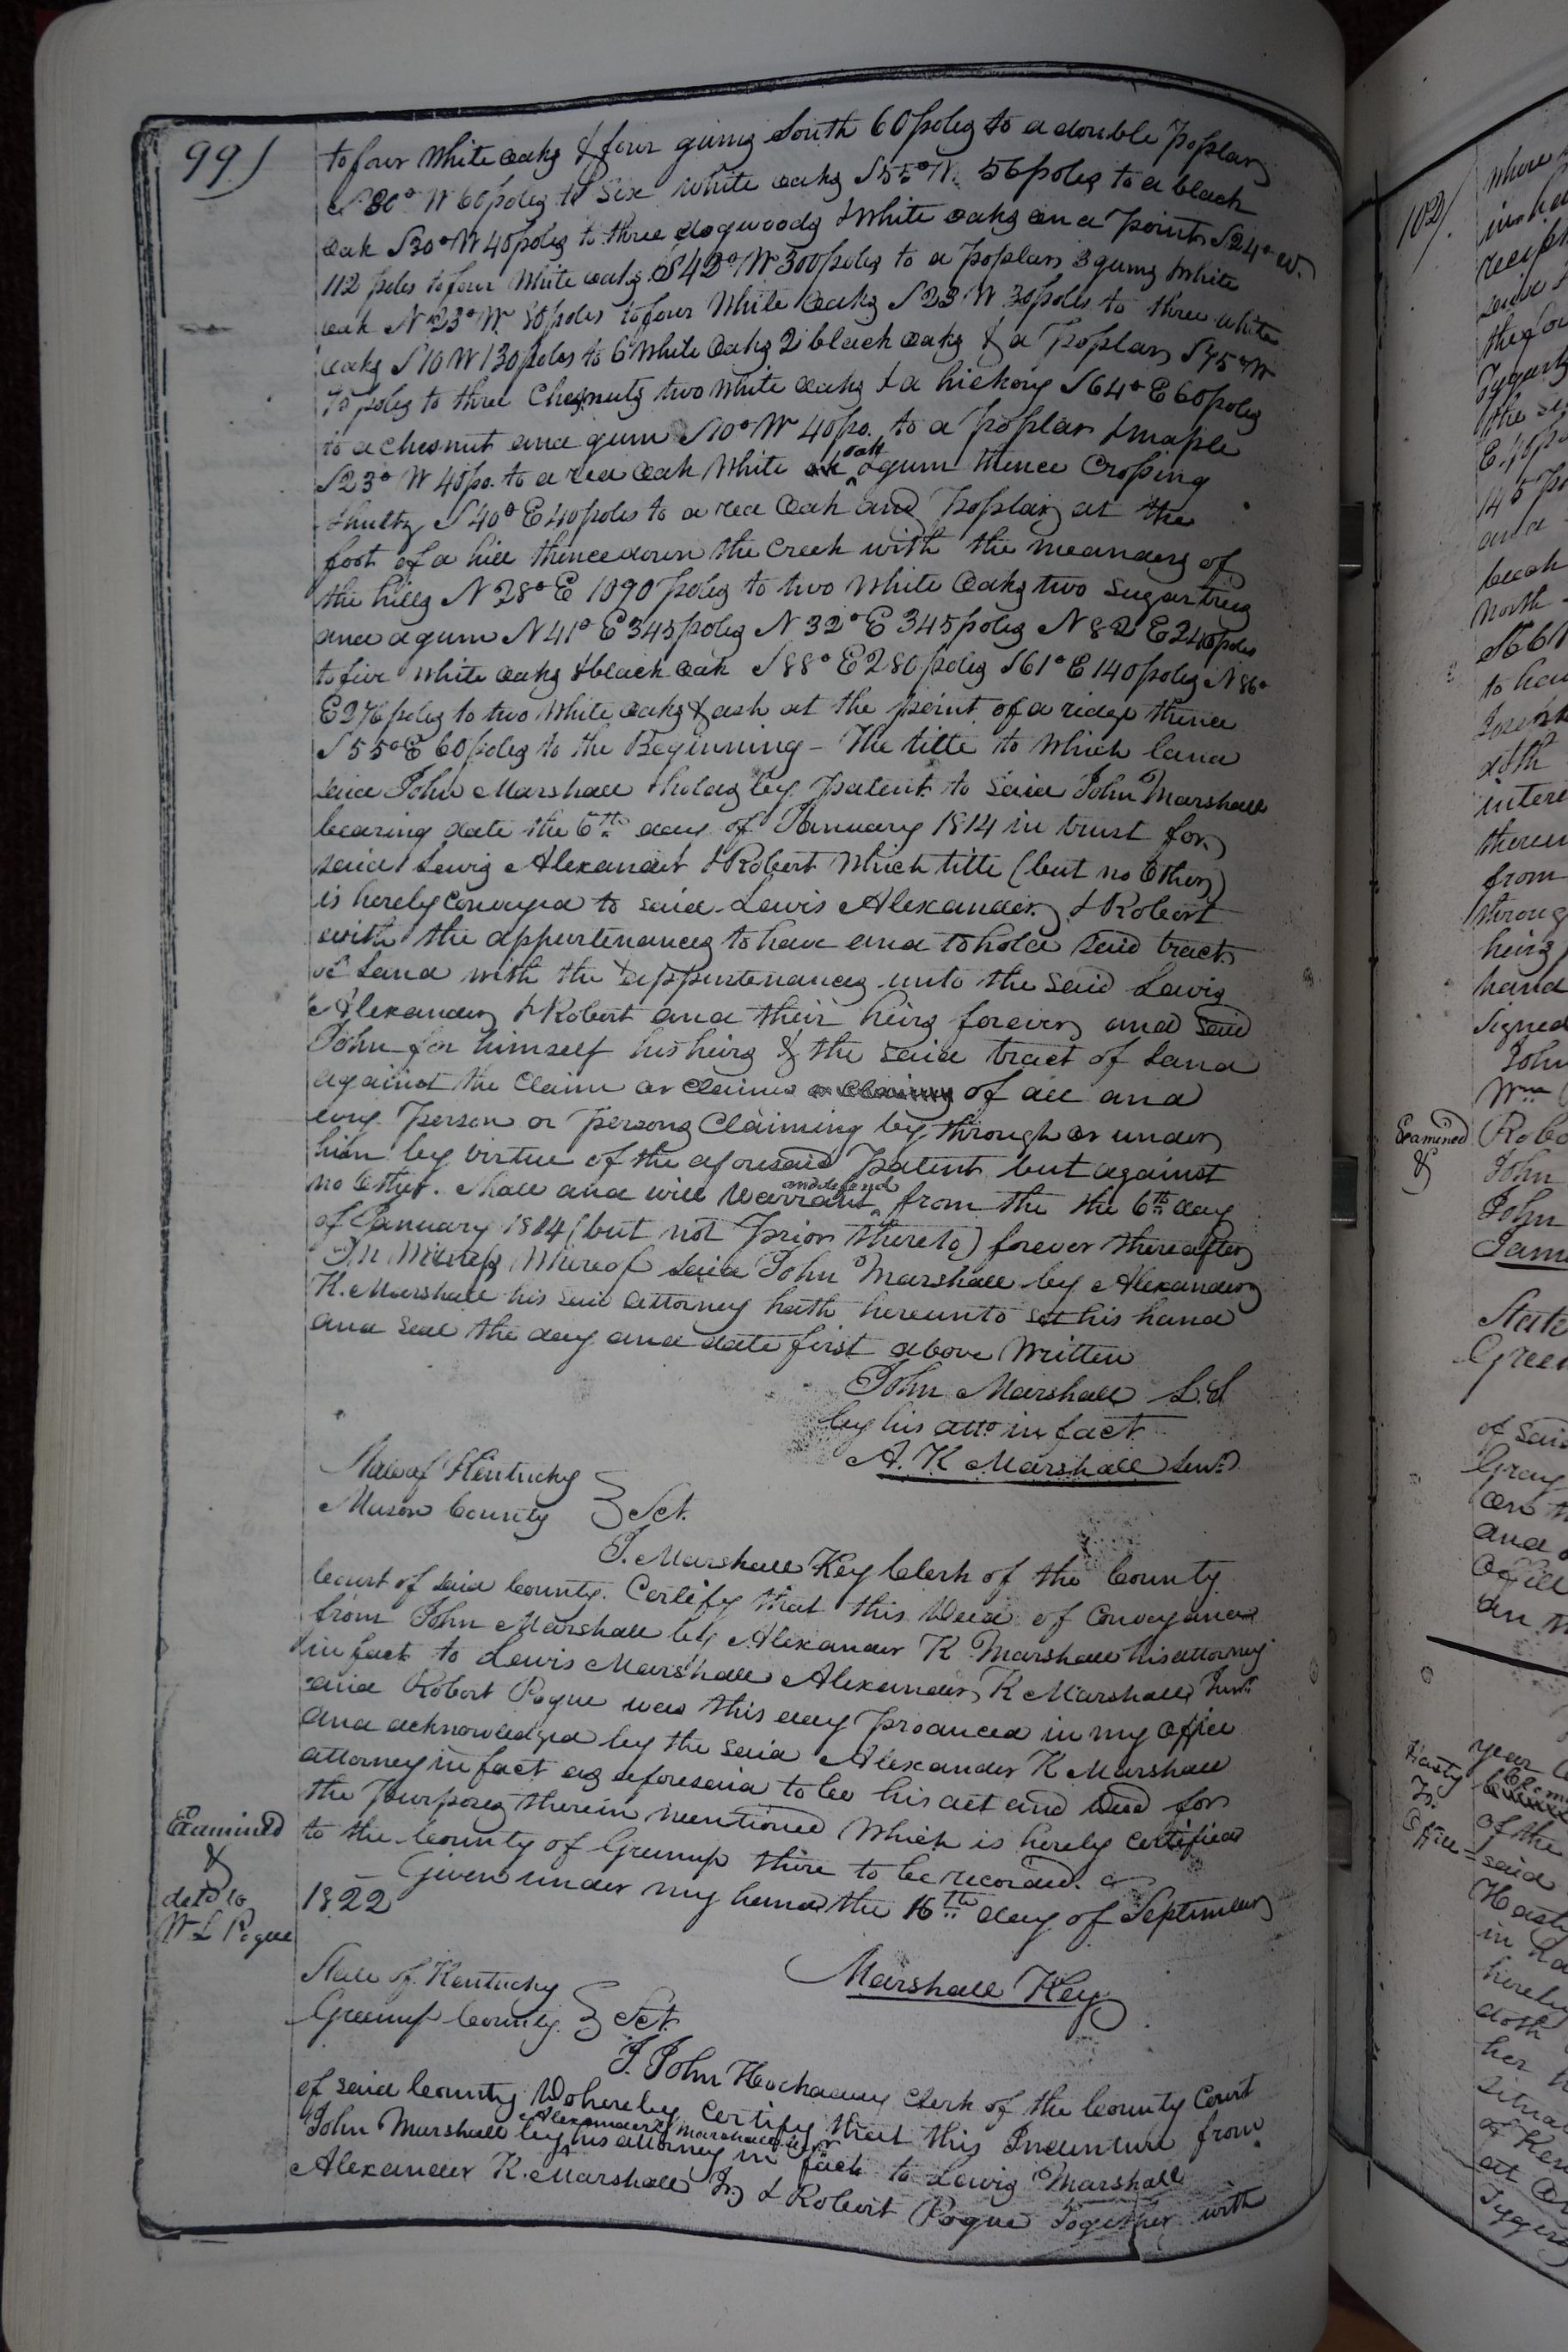 99)
to four White Oaks & four gums South 60 poles to a double Poplar
S 80° W 60 poles to Six White Oaks S 55° W. 56 poles to a black
Oak S 30° W 40 poles to three dogwoods & White Oaks on a Point S 24° W.
112 poles to four White Oaks S 42° W 300 poles to a Poplar 3 gums & White
oak N 23° W. 50 poles to four White Oaks S 23 W 30 poles to three White
Oaks S 10 W 130 poles to 6 White Oaks 2 black Oaks & a Poplar S 75° W
70 poles to three Chesnuts two White Oaks & a hickory S 64° E 60 poles
to a Chesnut and gum S 10° W 40 po. to a Poplar & maple
S 23° W 40 po. to a red Oak White oak & gum thence Crossing
Shultz S 40° E 40 poles to a red Oak and Poplar at the
foot of a hill thence down the Creek with the meanders of
the hills N 28° E 1090 poles to two White Oaks two Sugartrees
and a gum N 41° E 345 poles N 32° E 345 poles N 82 E 240 poles
to five White Oaks & black Oak S 88° E 280 poles S 61° E 140 poles N 86°
E 276 poles to two White Oaks & ash at the point of a ridge thence
S 55° E 60 poles to the Beginning – The title to Which land
said John Marshall holds by Patent to said John Marshall
bearing date the 6th day of January 1814 in trust for
said Lewis Alexander & Robert Which title (but no Other)
is hereby Conveyed to said Lewis Alexander & Robert
with the appurtenances to have and to hold said tract
of Land with the appurtenances unto the said Lewis
Alexander & Robert and their heirs forever and said
John for himself his heirs & the said tract of Land
against the Claim or Claims or Claims of all and
evry Person or Persons Claiming by, through or under
him by virtue of the aforesaid Patent but against
no Other. Shall and will Warrant and defend from the the 6th day
of January 1814 (but not Prior thereto) forever thereafter
In Witness Whereof said John Marshall by Alexander
K. Marshall his said attorney hath hereunto set his hand
and seal the day and date first above Written
John Marshall L.S
by his atto in fact
A. K Marshall Senr.
State of Kentucky
Mason County } Sct.
I. Marshall Key Clerk of the County
Court of said County. Certify that this Deed of Conveyance
from John Marshall by Alexander K Marshall his attorney
in fact to Lewis Marshall Alexander K Marshall Junr
and Robert Pogue was this day Produced in my Office
and acknowledged by the said Alexander K Marshall
attorney in fact as aforesaid to be his act and Deed for
the Purposes therein mentioned Which is hereby Certified
to the County of Greenup there to be recorded.
Given under my hand the 16th day of September
1822
Marshall Key
Examined
&
deld to
W L Pogue
State of Kentucky
Greenup County } Sct.
I. John Hockaday Clerk of the County Court
of said County Do hereby Certify that this Indenture from
John Marshall by Alexander K Marshall Senr his attorney in fact to Lewis Marshall
Alexander K. Marshall Jr & Robert Pogue Together with
102)
where
the
E. 40 po
and
North
to
doth
from
through
heirs
hand
Signed
John
Wm
Examined
&
Robe
John
John
Jam
State
Green
of said
and
year
Hasty
To.
Office
of the
said
Hasty
in
hereby
doth
her
at